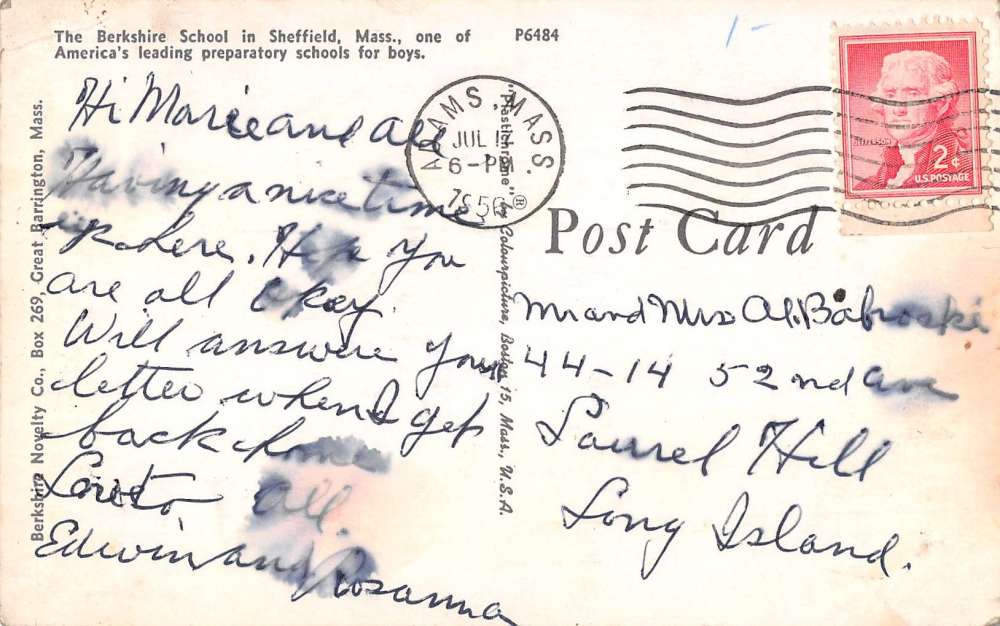 The Berkshire School in Sheffield, Mass., one of
America's leading preparatory schools for boys.
P6484
Berkshire Novelty Co., Box 269, Great Barrington, Mass.
Hi Marie and Al
Having a nice time
up here. Hope you
are all okay.
Will answer your
letter when I get
back home
Love to All.
Edwin and Rosanna
"Plastichrome"® by Colourpicture, Boston 15, Mass., U.S.A.
ADAMS, MASS.
JUL
6-PM
1956
JEFFERSON
2¢
U.S. POSTAGE
Post Card
Mr and Mrs Al. Babroski
44-14 52nd ave
Laurel Hill
Long Island.
1-